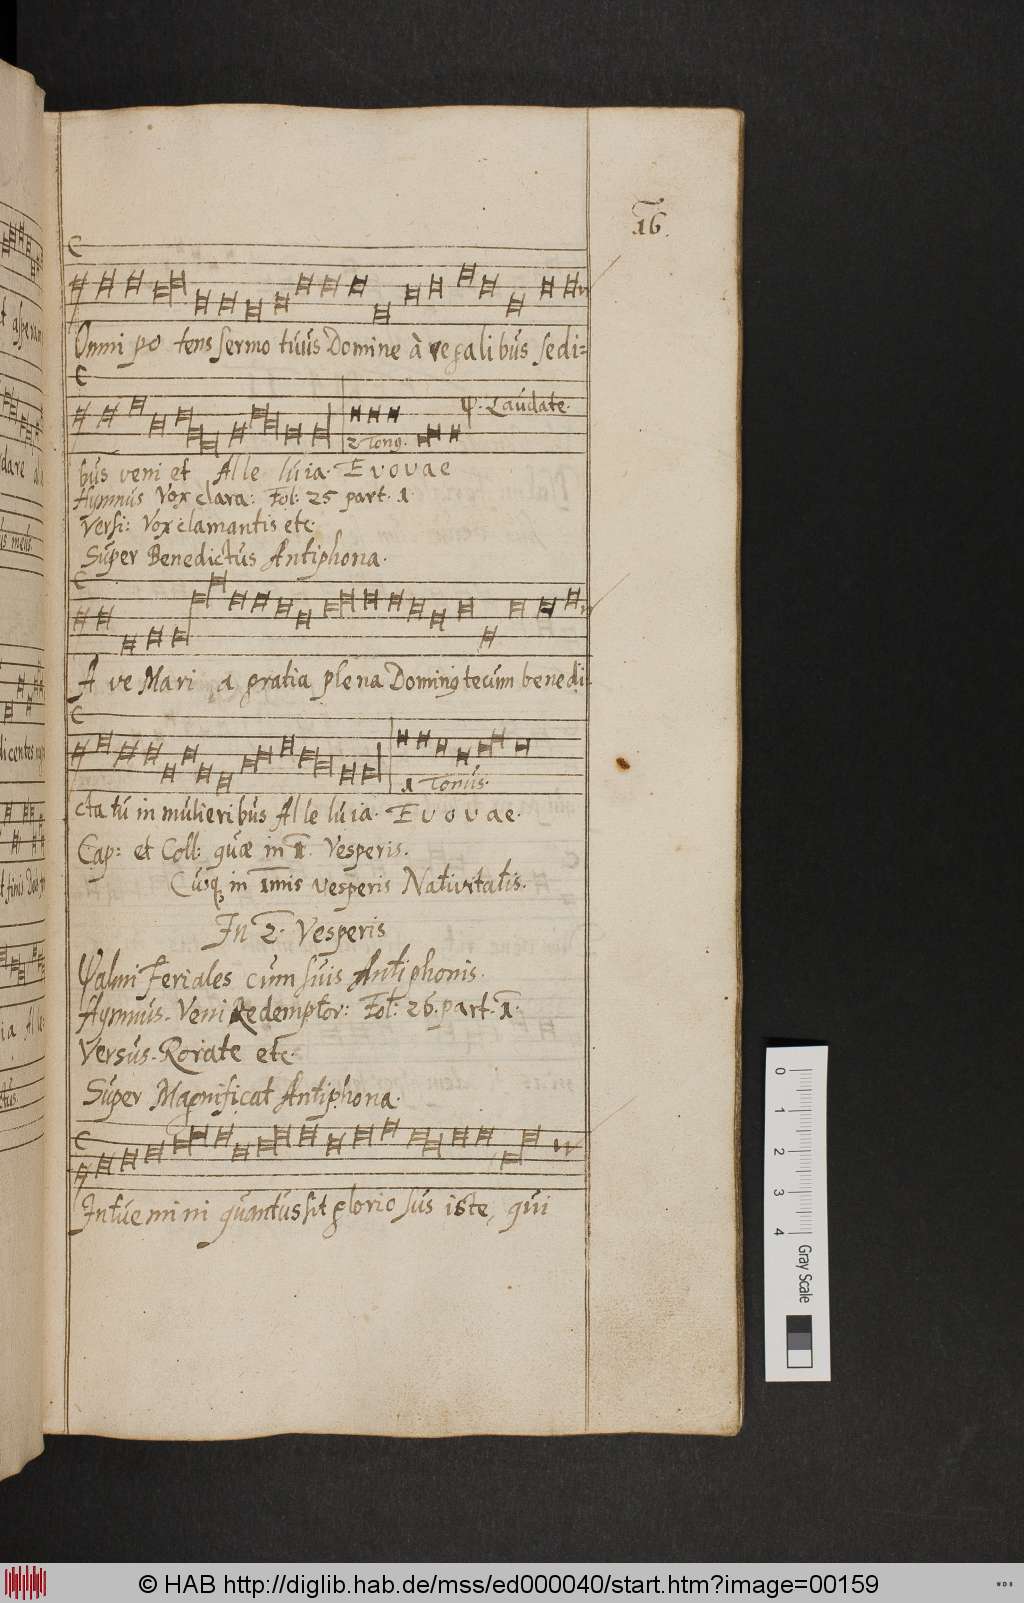 16.
Omni po tens sermo tuus Domine à regalibus sedi=
Ψ. Laudate.
2 Ton9.
bus veni et Alle luia. Evovae
Hymnus Vox clara: Fol: 25 part. 1
Versi: Vox clamantis etc.
Super Benedictus Antiphona.
A ve Mari a gratia plena Domin9 tecum benedi-
1 Tonus.
cta tu in mulieribus Alle luia. Evovae.
Cap: et Coll: quæ in 1. Vesperis.
Cusq3 in 1mis vesperis Nativitatis.
In 2. Vesperis
Psalmi Feriales cum suis Antiphonis.
Hymnus. Veni Redemptor: Fol: 26. part. 1.
Versus. Rorate etc.
Super Magnificat Antiphona.
Intuemini quantus sit gloriosus iste, qui
0 1 2 3 4 Gray Scale
© HAB http://diglib.hab.de/mss/ed000040/start.htm?image=00159